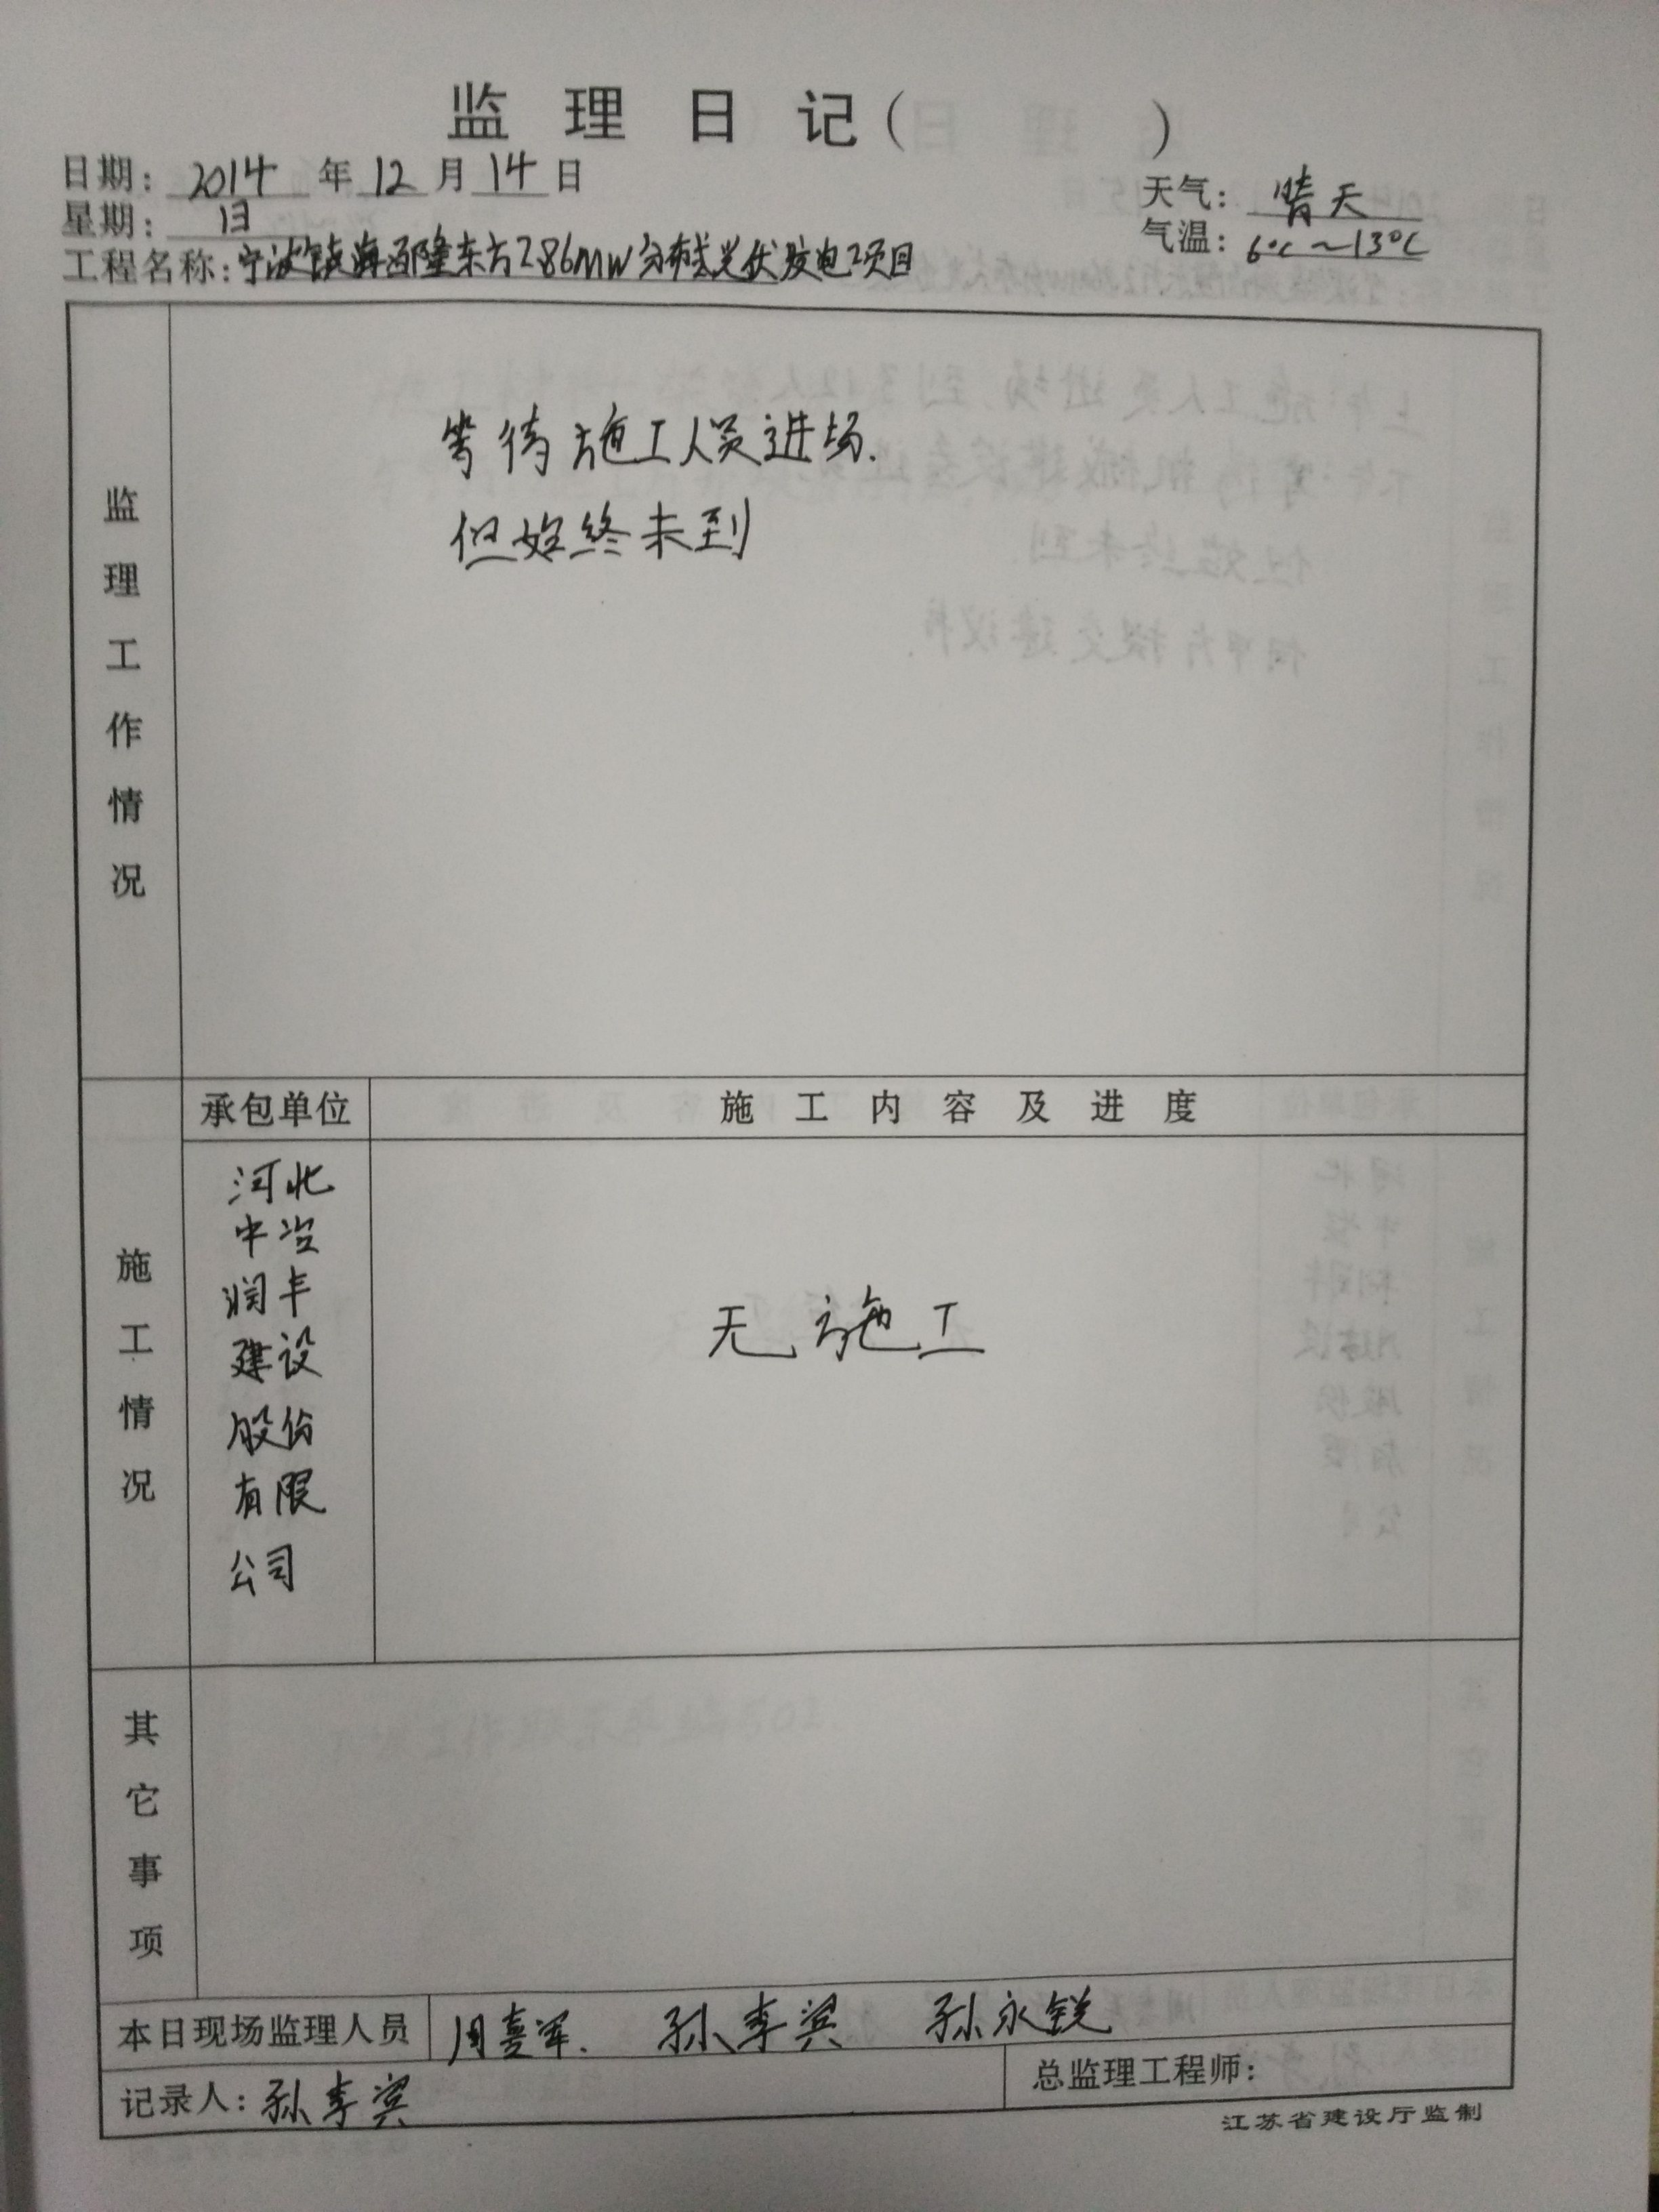 监理日记（ ）
日期：2014年12月14日
天气：晴天
星期：日
气温：6℃～13℃
工程名称：宁波镇海西隆东方2.86MW分布式光伏发电项目
监理工作情况
等待施工人员进场.
但始终未到
承包单位
施工内容及进度
施工情况
河北
中冶
润丰
建设
股份
有限
公司
无施工
其它事项
本日现场监理人员
周喜军. 孙李宾 孙永锐
记录人：孙李宾
总监理工程师：
江苏省建设厅监制